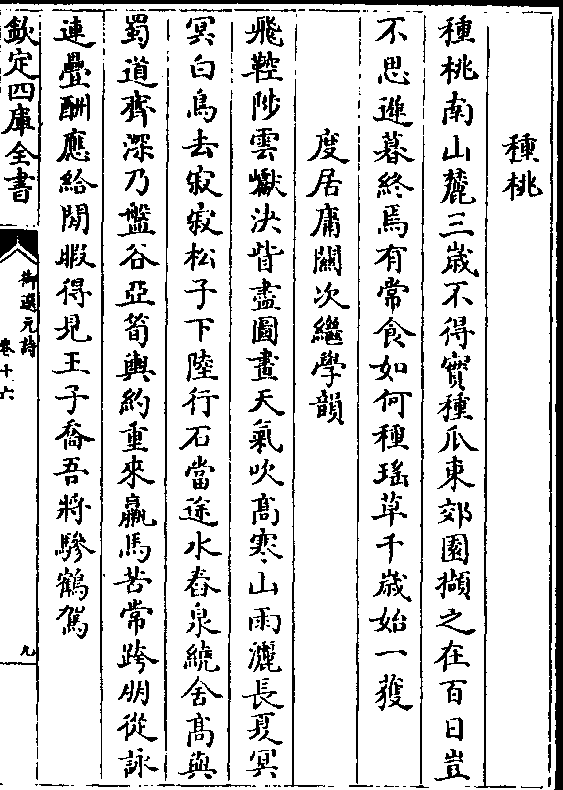 種桃
種桃南山麓三歳不得實種瓜東郊園擷之在百日豈
不思遲暮終焉有常食如何種瑤草千歳始一獲
度居庸關次繼學韻
飛鞚陟雲巘決眥盡圖畫天氣吹髙寒山雨灑長夏冥
冥白鳥去寂寂松子下陸行石當途水舂泉繞舍髙與
蜀道齊深乃盤谷亞筍輿約重來羸馬苦常跨朋從詠
連疊酬應給閒暇得見王子喬吾將驂鶴駕
欽定四庫全書
御選元詩
卷十六
九